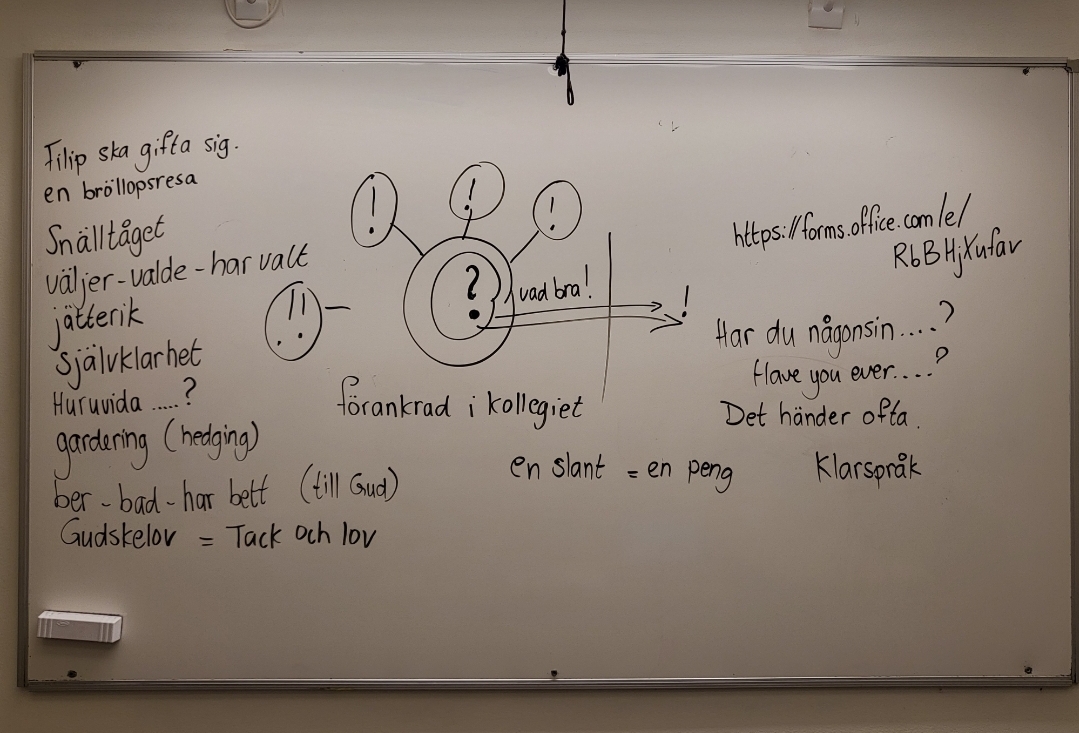 Filip ska gifta sig.
en bröllopsresa
Snälltåget
väljer - valde - har valt
jätterik
självklarhet
Huruvida .....?
gardering (hedging)
ber - bad - har bett (till Gud)
Gudskelov = Tack och lov
!
!
!
!!
?
vad bra!
!
förankrad i kollegiet
en slant = en peng
https://forms.office.com/e/
RbBHjXufav
Har du någonsin ....?
Have you ever....?
Det händer ofta.
Klarspråk